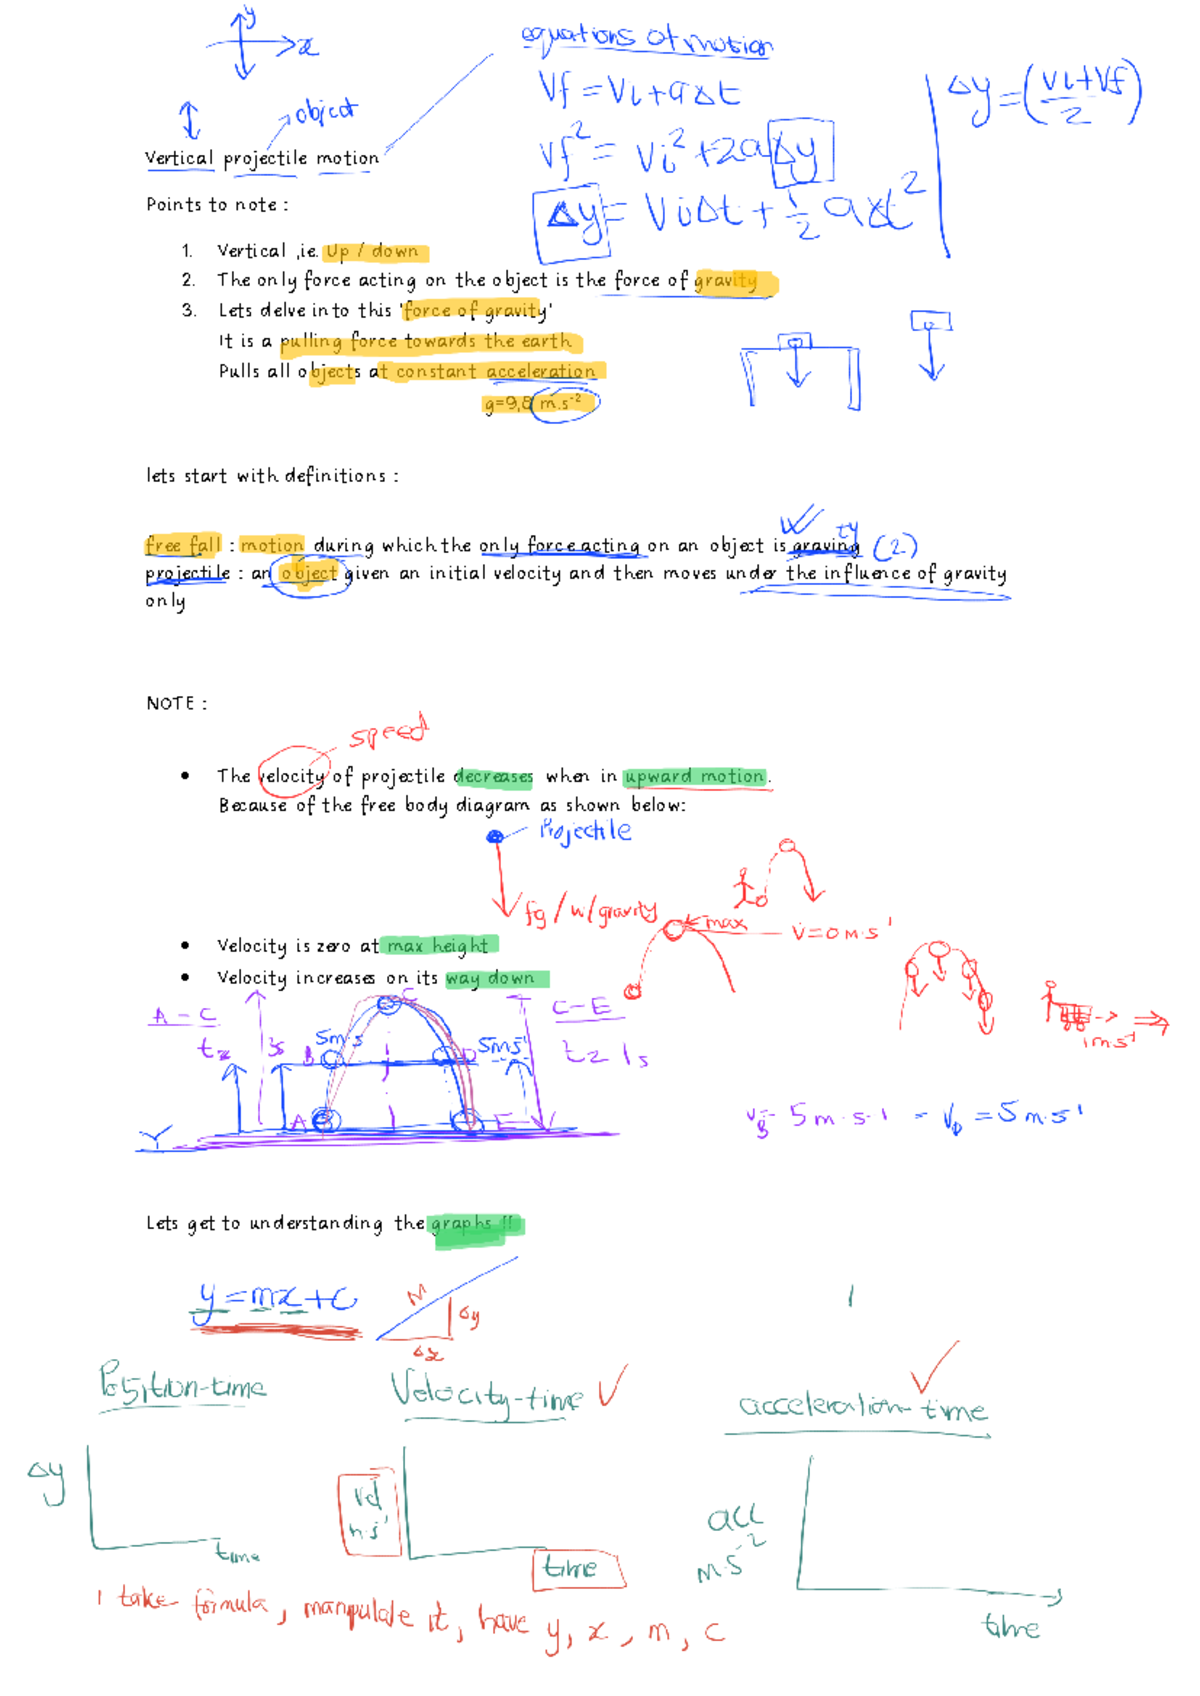 y
x
equations of motion
Vf = Vi + aΔt
Δy = (Vi+Vf/2)
object
Vertical projectile motion
Vf² = Vi² + 2aΔy
Points to note :
Δy = ViΔt + ½ aΔt²
1. Vertical ,ie. Up / down
2. The only force acting on the object is the force of gravity
3. Lets delve into this 'force of gravity'
It is a pulling force towards the earth
Pulls all objects at constant acceleration
g=9,8 m.s⁻²
lets start with definitions :
ty
free fall : motion during which the only force acting on an object is graving (2)
projectile : an object given an initial velocity and then moves under the influence of gravity
only
NOTE :
speed
The velocity of projectile decreases when in upward motion.
Because of the free body diagram as shown below:
Projectile
fg / w/gravity
max
V=0m·s⁻¹
Velocity is zero at max height
Velocity increases on its way down
A - C
C
C - E
t=
3s
5m·s
B
D
5ms⁻¹
t= 1s
1ms⁻¹
A
E
VB= 5m·s-1 - VD = 5m·s⁻¹
Lets get to understanding the graphs !!
y = mx + c
M
Δy
Δx
Position-time
Velocity-time
acceleration-time
Δy
vel
m·s⁻¹
acc
m·s⁻²
time
time
time
I take formula, manpulate it, have y, x, m, c